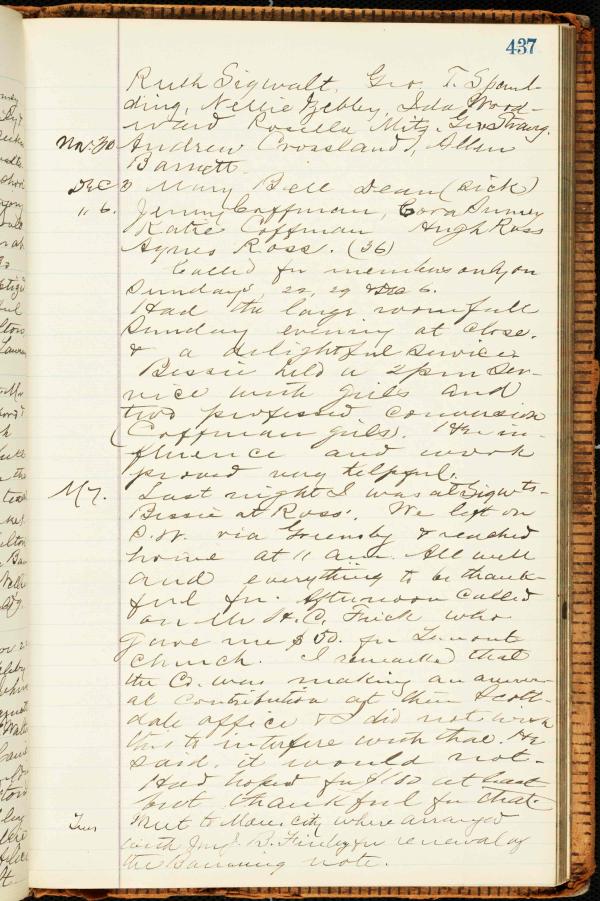 437
Ruth Sigwalt, Geo. T. Spaul-
ding, Nellie Zebley, Ida Wood-
ward Rosella Mitz, Geo Strang.
Nov 30 Andrew Crossland, Allen
Barnett.
Dec 3 Mary Bell Dean (sick)
" 6. Jenny Coffman, Cora
Katie Coffman Hugh Ross
Agnes Ross. (36)
Called for members only on
Sundays, 22, 29 & Dec 6.
Had the large room full
Sunday evening at close.
& a delightful service.
Bessie held a 2 pm ser-
vice with girls and
two professed conversion
(Coffman girls). Her in-
fluence and work
proved very helpful.
M 7. Last night I was at
Bessie at Ross'. We left on
P.W. via Greensby & reached
home at 11 am. All well
and everything to be thank-
ful for. Afternoon called
on Mr H. C. Frick who
gave me $50. for Lemont
Church. I remarked that
the Co. was making an annu-
al contribution at their Scott-
dale office & I did not wish
this to interfere with that. He
said, it would not.
Had hoped for $100 at least
but thankful for that.
Tues Went to Mon. city, where arranged
with Jno. B. Finley for renewal of
the note.